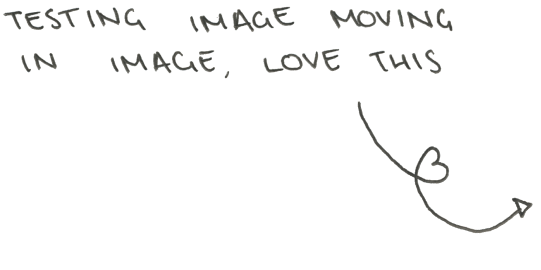 TESTING IMAGE MOVING
IN IMAGE, LOVE THIS